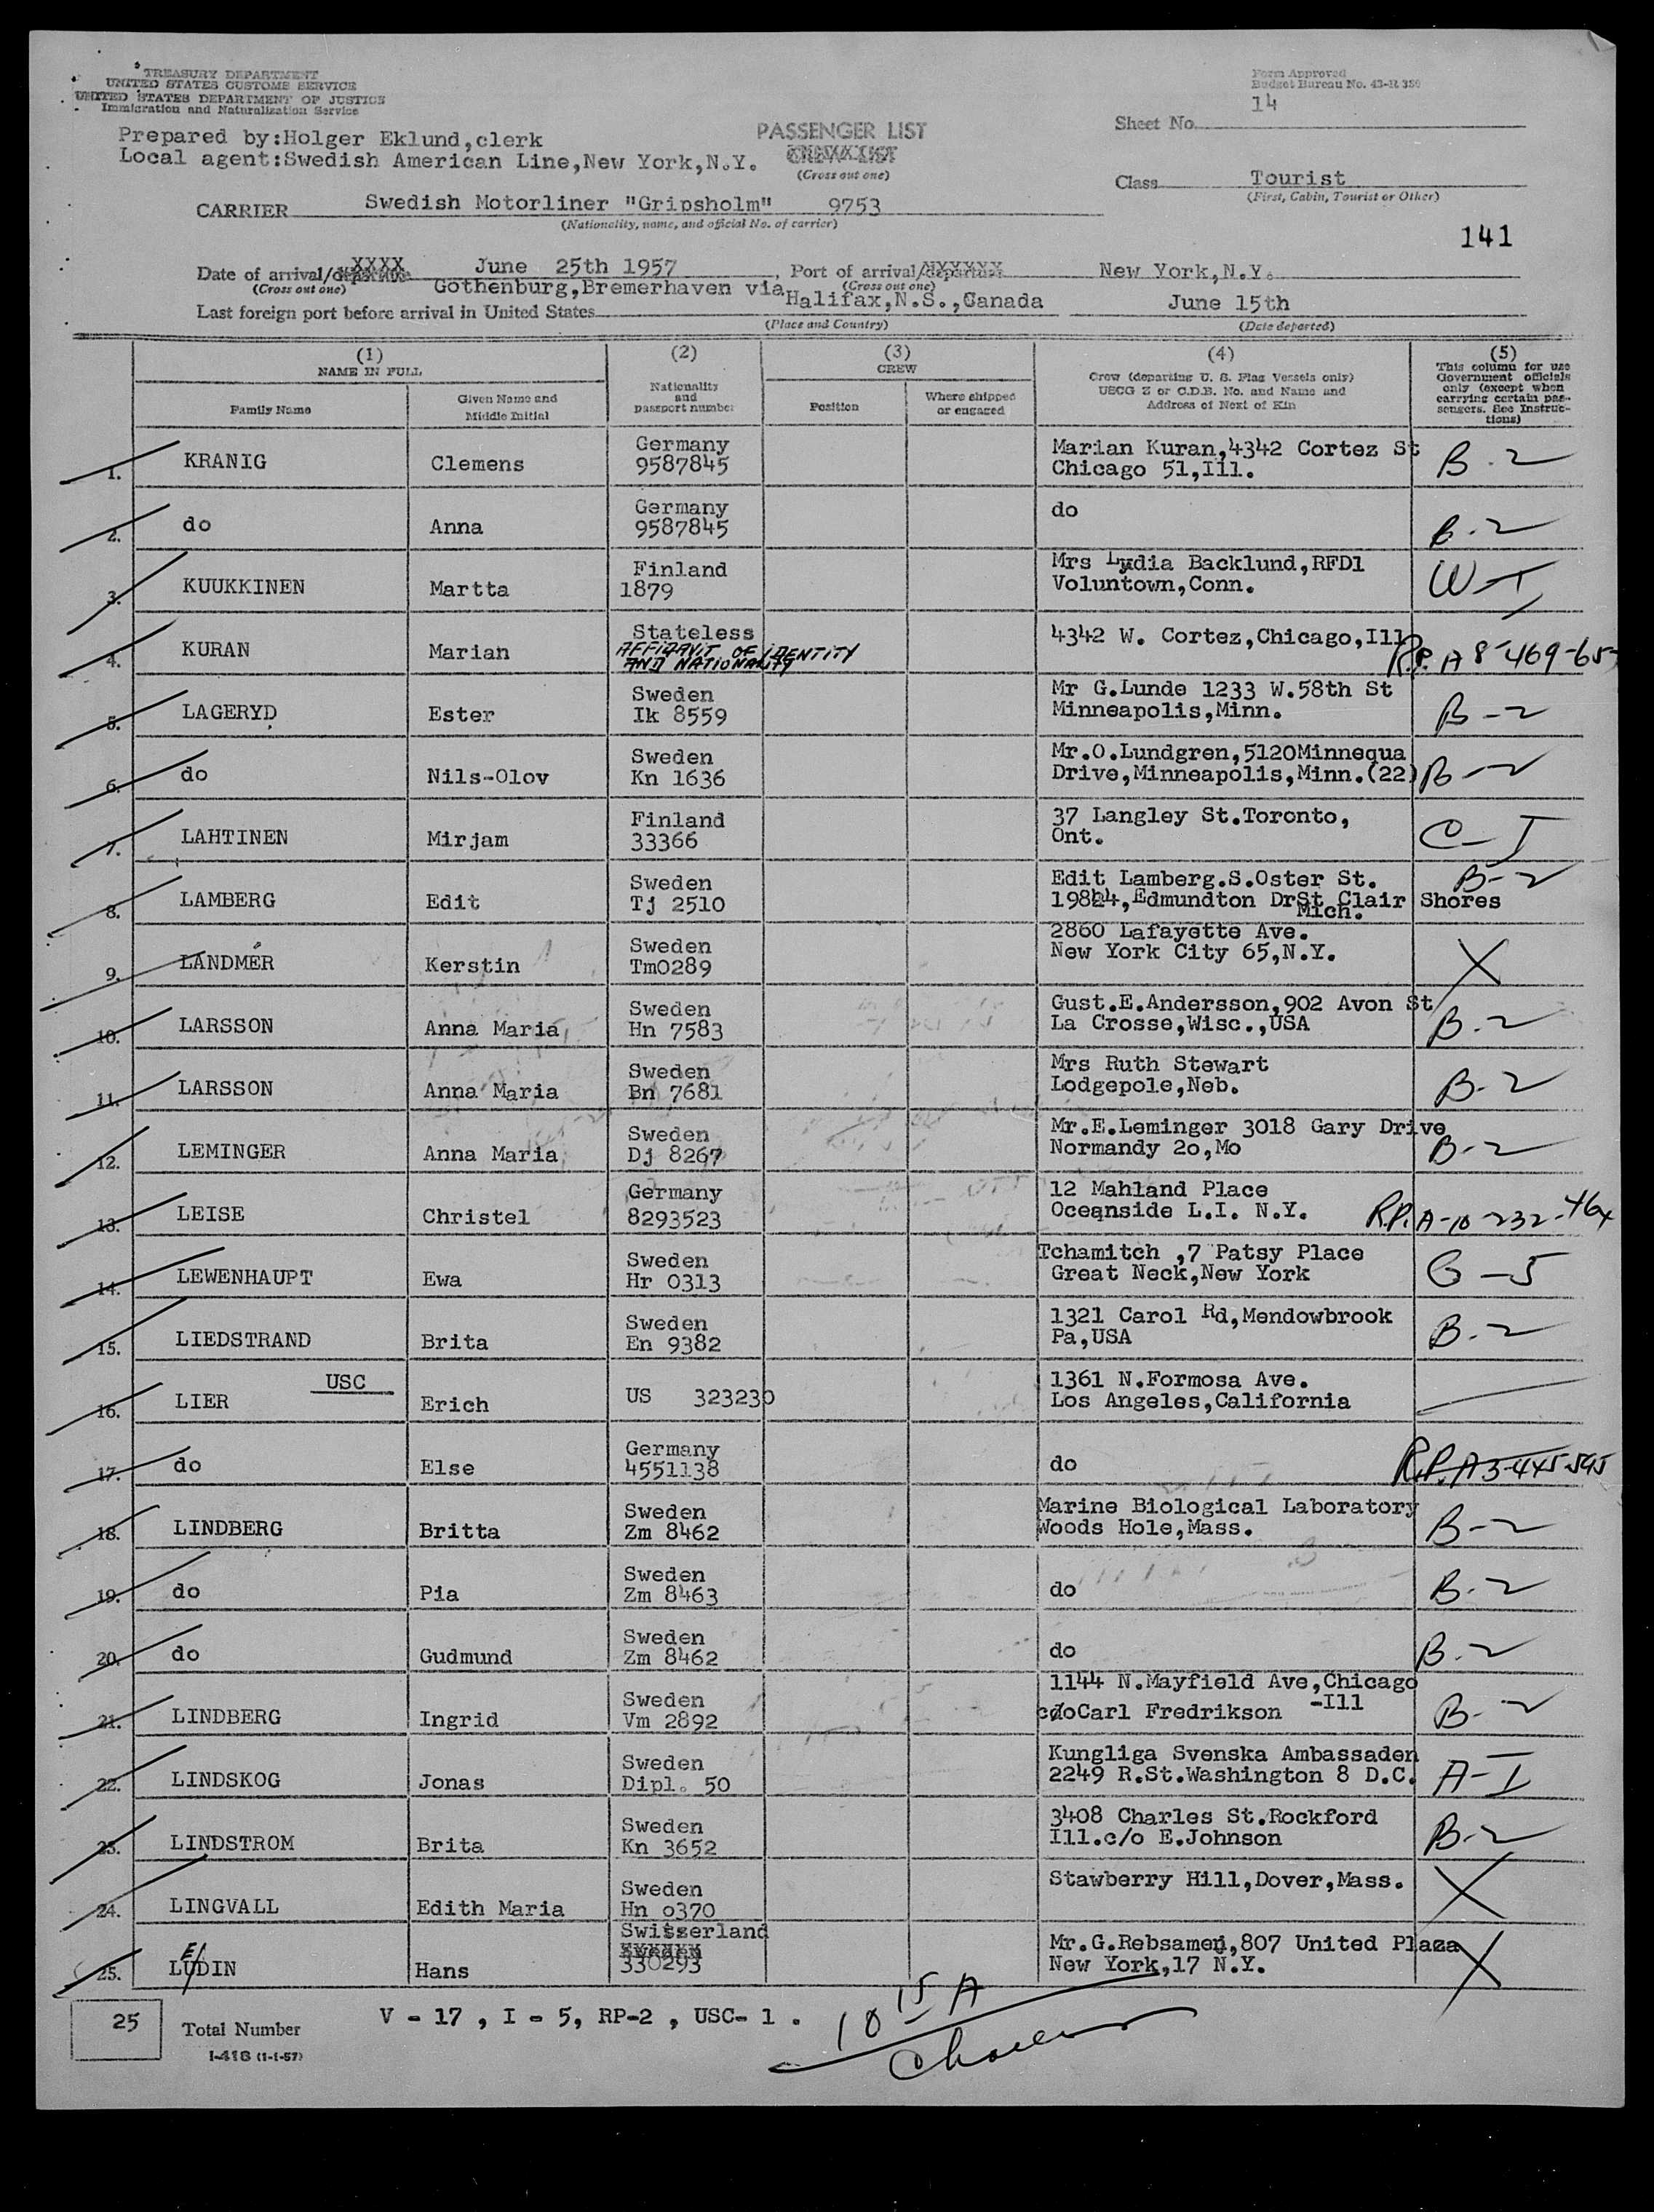 TREASURY DEPARTMENT
UNITED STATES CUSTOMS SERVICE
UNITED STATES DEPARTMENT OF JUSTICE
Immigration and Naturalization Service
Form Approved
Budget Bureau No. 43-R 380
Prepared by:Holger Eklund,clerk
Local agent:Swedish American Line,New York,N.Y.
PASSENGER LIST
CREW LIST
(Cross out one)
Sheet No. 14
Class Tourist
(First, Cabin, Tourist or Other)
CARRIER Swedish Motorliner "Gripsholm" 9753
(Nationality, name, and official No. of carrier)
141
Date of arrival/departure XXXX June 25th 1957, Port of arrival/departure New York,N.Y.
(Cross out one) (Cross out one)
Gothenburg,Bremerhaven via
Last foreign port before arrival in United States Halifax,N.S.,Canada June 15th
(Place and Country) (Date departed)
(1) NAME IN FULL
Family Name
Given Name and Middle Initial
(2) Nationality and passport number
(3) CREW
Position
Where shipped or engaged
(4) Crew (departing U. S. Flag Vessels only)
USCG Z or C.D.B. No. and Name and
Address of Next of Kin
(5) This column for use Government officials only (except when carrying certain passengers. See Instructions)
1. KRANIG Clemens Germany 9587845 Marian Kuran,4342 Cortez St Chicago 51,Ill. B-2
2. do Anna Germany 9587845 do B-2
3. KUUKKINEN Martta Finland 1879 Mrs Lydia Backlund,RFD1 Voluntown,Conn. W-I
4. KURAN Marian Stateless AFFIDAVIT OF IDENTITY AND NATIONALITY 4342 W. Cortez,Chicago,Ill R.P. A 8-469-65
5. LAGERYD Ester Sweden Ik 8559 Mr G.Lunde 1233 W.58th St Minneapolis,Minn. B-2
6. do Nils-Olov Sweden Kn 1636 Mr.O.Lundgren,5120Minnequa Drive,Minneapolis,Minn.(22) B-2
7. LAHTINEN Mirjam Finland 33366 37 Langley St.Toronto, Ont. C-I
8. LAMBERG Edit Sweden Tj 2510 Edit Lamberg.S.Oster St. Edmundton Dr St Clair Shores Mich. B-2
9. LANDMÉR Kerstin Sweden Tm0289 2860 Lafayette Ave. New York City 65,N.Y. X
10. LARSSON Anna Maria Sweden Hn 7583 Gust.E.Andersson,902 Avon St La Crosse,Wisc.,USA B-2
11. LARSSON Anna Maria Sweden Bn 7681 Mrs Ruth Stewart Lodgepole,Neb. B-2
12. LEMINGER Anna Maria Sweden Dj 8267 Mr.E.Leminger 3018 Gary Drive Normandy 2o,Mo B-2
13. LEISE Christel Germany 8293523 12 Mahland Place Oceanside L.I. N.Y. R.P. A-10-232-
14. LEWENHAUPT Ewa Sweden Hr 0313 Tchamitch ,7 Patsy Place Great Neck,New York G-5
15. LIEDSTRAND Brita Sweden En 9382 1321 Carol Rd,Mendowbrook Pa,USA B-2
16. LIER USC Erich US 323230 1361 N.Formosa Ave. Los Angeles,California
17. do Else Germany 4551138 do R.P. A3-445-595
18. LINDBERG Britta Sweden Zm 8462 Marine Biological Laboratory Woods Hole,Mass. B-2
19. do Pia Sweden Zm 8463 do B-2
20. do Gudmund Sweden Zm 8462 do B-2
21. LINDBERG Ingrid Sweden Vm 2892 1144 N.Mayfield Ave,Chicago -Ill c/oCarl Fredrikson B-2
22. LINDSKOG Jonas Sweden Dipl. 50 Kungliga Svenska Ambassaden 2249 R.St.Washington 8 D.C. A-I
23. LINDSTROM Brita Sweden Kn 3652 3408 Charles St.Rockford Ill.c/o E.Johnson B-2
24. LINGVALL Edith Maria Sweden Hn o370 Stawberry Hill,Dover,Mass. X
25. LUDIN Hans Switserland Sweden 330293 Mr.G.Rebsamen,807 United Plaza New York,17 N.Y. X
25
Total Number
V - 17 , I - 5, RP-2 , USC- 1 .
10 15 A
I-418 (1-1-57)